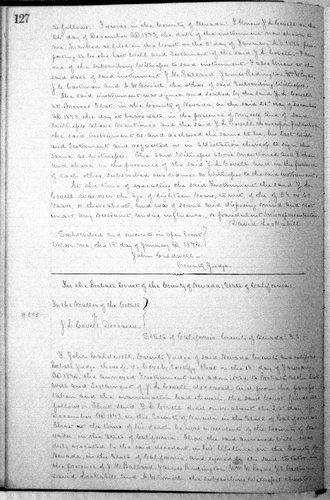 127
as follows. I reside in the County of Nevada. I knew J. L. Covell on the
22d day of December AD. 1873, the date of the instrument now shown to
me, marked as filed in this Court on the day of January AD. 1874 pur-
porting to be the last Will and Testament of the said J. L. Covell. I am
one of the subscribing witnesses to said instrument. I also knew at the
said date of said instrument J. McBalland, James Redington,
the other of said subscribing witnesses.
The said instrument was signed and sealed by the said J. L. Covell
at in the County of Nevada on the said 22d day of December
AD. 1873, the day it bears date in the presence of myself and of said
witnesses above mentioned and the said J. L. Covell thereof published
the said instrument as and declared the same to be, his last Will
and testament and requested us in attestation thereof to sign the
same as witnesses. The said witnesses above mentioned and I then
and there in the presence of the said J. L. Covell and in the presence
of each other subscribed our names as witnesses to the said instrument.
At the time of executing the said Instrument the said J. L.
Covell was over the age of eighteen years, to wit of the age of
years, or thereabout, and was of sound and disposing mind and not
under any restraint undue influence, or fraudulent misrepresentation
David
Subscribed and sworn to in open Court
before me, this day of January AD. 1874.
John Caldwell
County Judge.
In the Probate Court of the County of Nevada, State of California.
In the Matter of the Estate
of
J. L. Covell Deceased.
State of California County of Nevada SS.
I, John Caldwell County Judge of said Nevada County and ex officio
Probate Judge thereof, do hereby certify that on the day of January
AD. 1874, the annexed Instrument was admitted to Probate as the last
Will and Testament of J. L. Covell deceased, and from the proofs
taken and the examination had therein the said Court finds as
follows: That said J. L. Covell died on or about the day of
December AD. 1873 in the County of Nevada in the State of California.
That at the time of his death he was a resident of the County of Ne-
vada in the State of California. That the said annexed Will was
duly executed by the said decedent in his lifetime in the County of
Nevada in the State of California and signed by the said testator in
the presence of J. McBalland James Redington
David and the subscribing witnesses